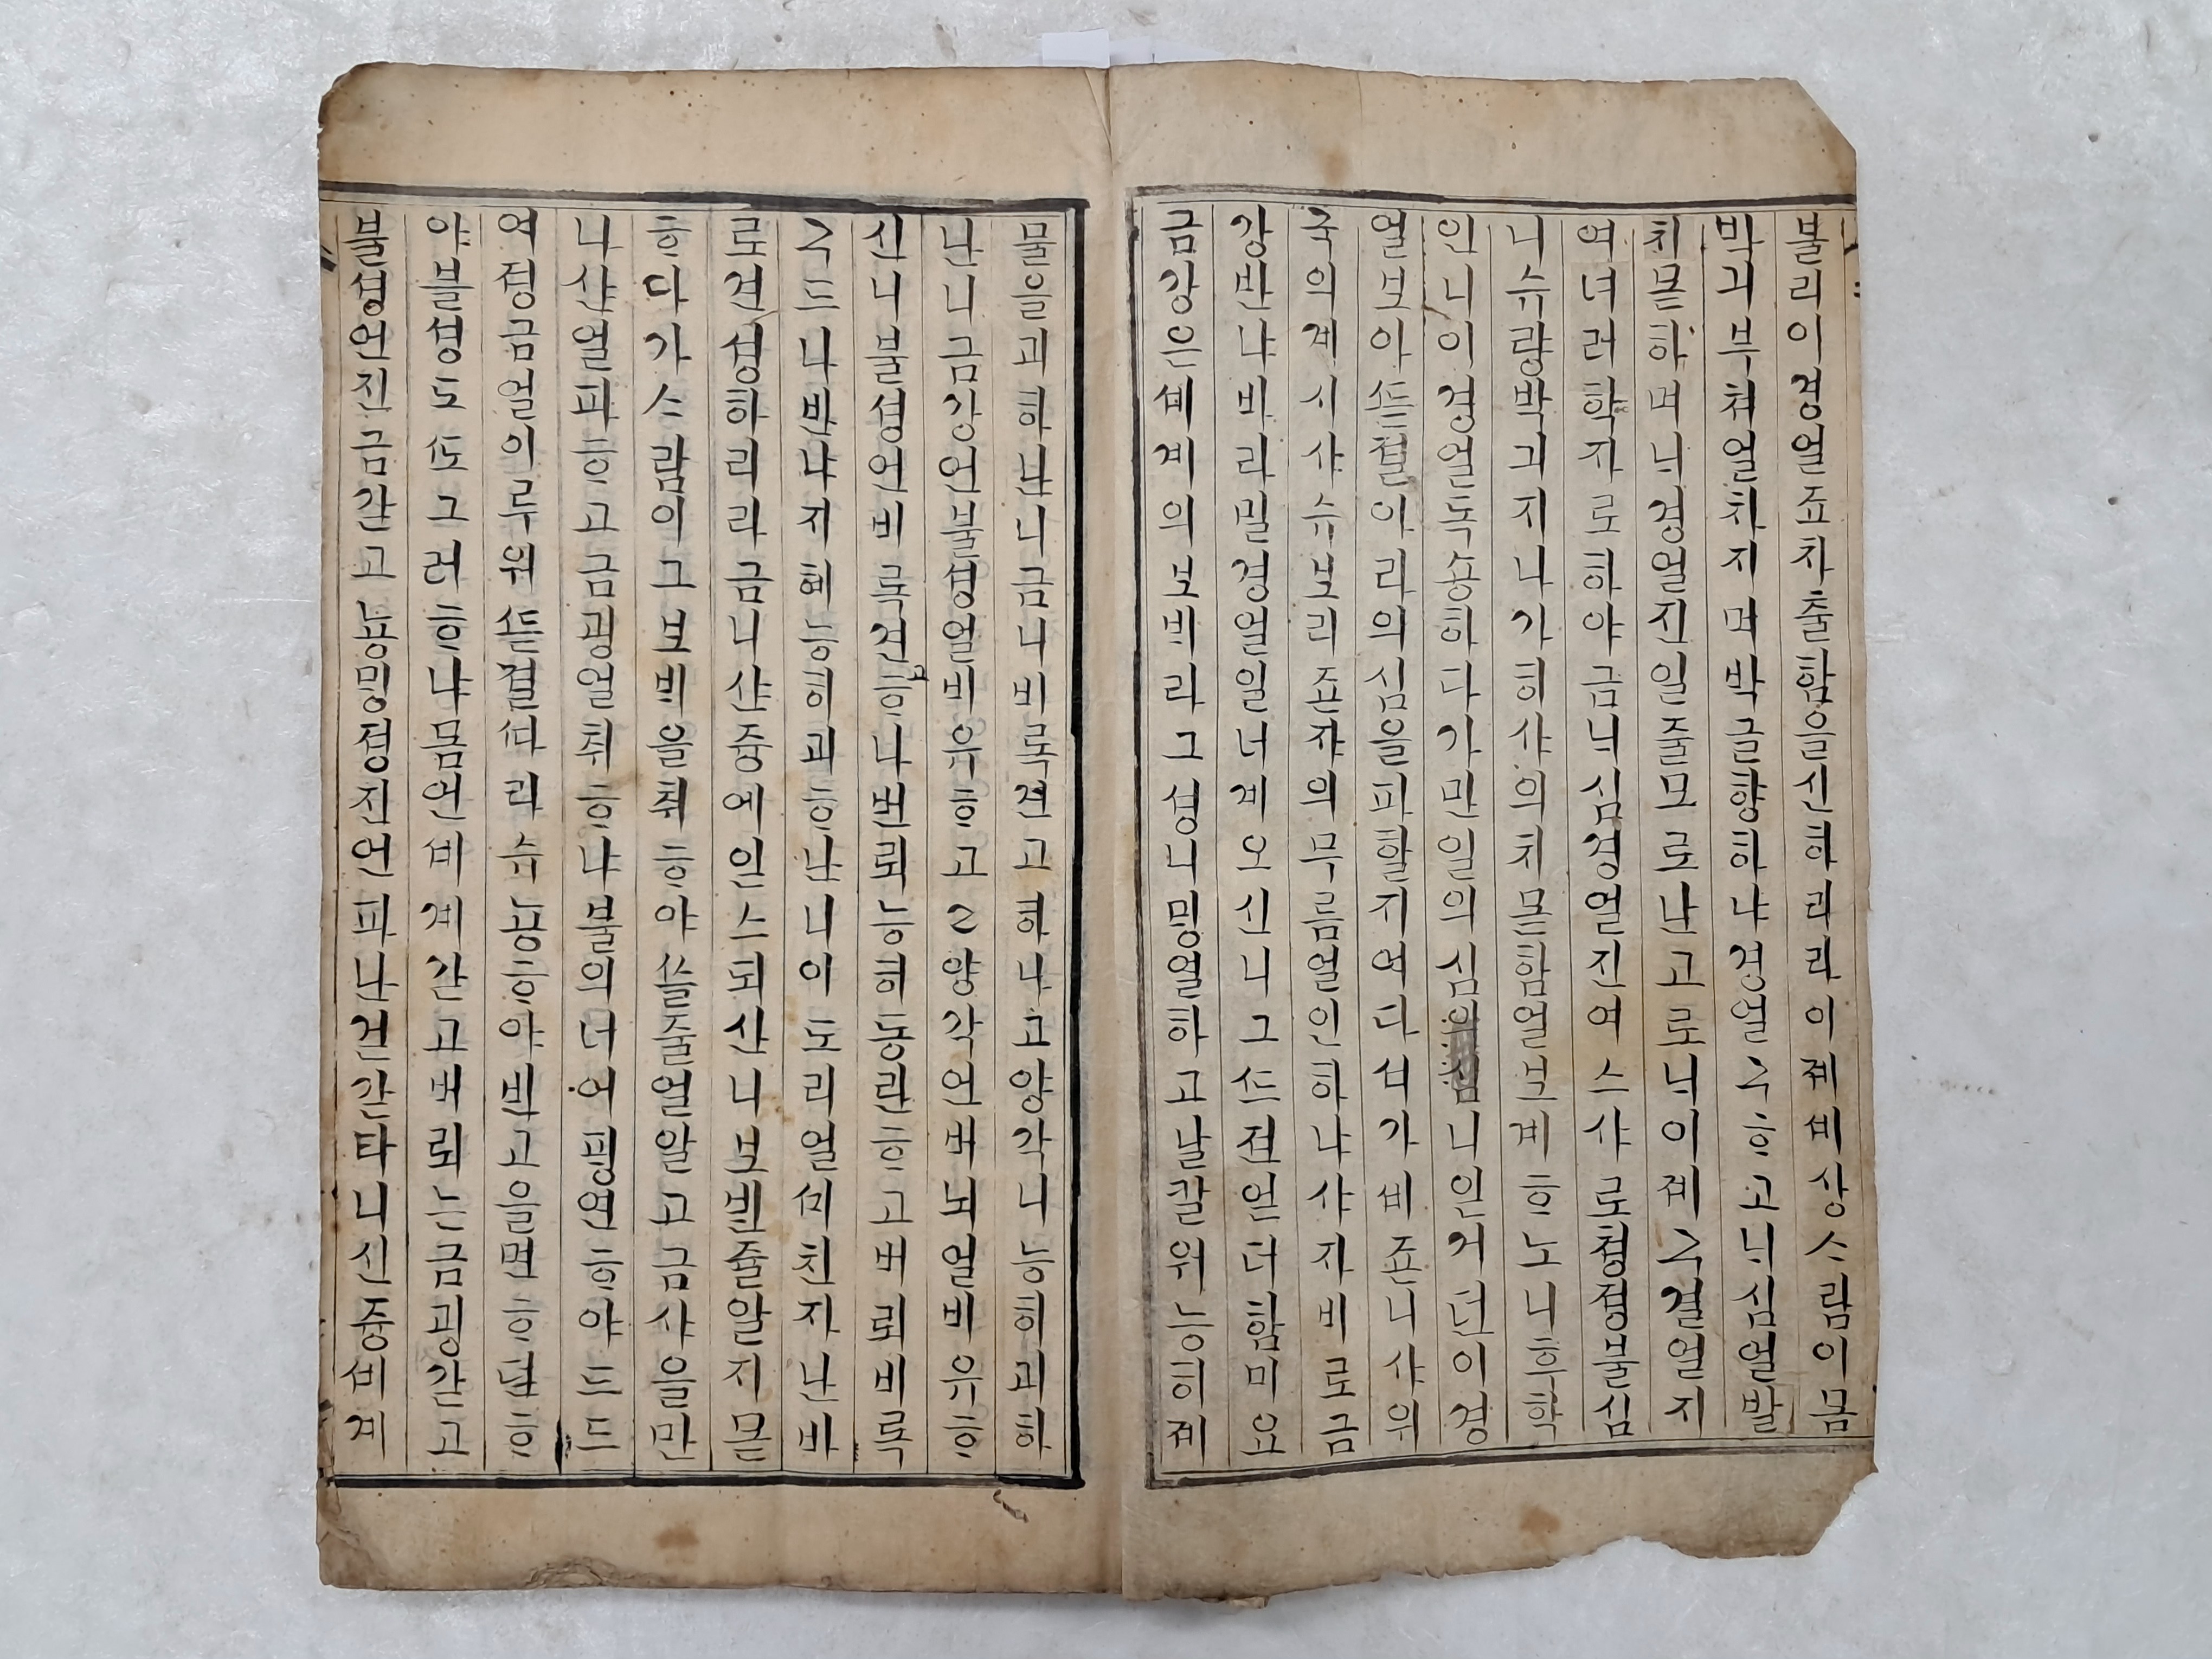 불리이경얼죠차출함을신하리라이졔셰상ᄉ람이몸
박긔부쳐얼차지며박글향하냐경얼구ᄒ고늬심얼발
치몯하며늬경얼진일줄모로난고로늬이졔구결얼지
여녀러학자로하야금늬심경얼진여ᄉ사로쳥졍불심
니슈량박긔지나가히사의치몯함얼보계ᄒ노니ᄒᆞ학
인니이경얼독숑하다가만일의심의심니인거던이경
얼보아ᄯᅳᆺ졀이리의심을파할지여다셔가셰죤니사위
국의계시사슈보리죤쟈의무름얼인하냐사자비로금
강반냐바라밀경얼일너계오신니그ᄯᅳ젼얻더함미요
금강은셰계의보비라그셩니밍열하고날칼위능히졔
물을괴하난니금니비록견고하나고양각니능히괴하
난니금강언불셩얼비유ᄒ고고양각언버뇌얼비유ᄒ
신니불셩언비록견ᄒ나번뢰능히동란ᄒ고버뢰비록
구드나반냐지혜능히괴ᄒ난니이도리얼ᄭᆡ친자난바
로견셩하리라금니산중에인ᄉ되산니보빈줄알지몯
ᄒ다가ᄉ람이그보비을취ᄒ야쓸줄얼알고금샤을만
나산얼파ᄒ고금광얼취ᄒ냐불의너어핑연ᄒ야드드
여졍금얼이루워ᄯᅳᆺ졀ᄯᅡ리슈뇽ᄒ야빈고을면ᄒ담ᄒ
야불셩도ᄯᅩ그러ᄒ냐몸언셰계갇고버뢰는금광갇고
불셩언진금갇고뇽밍졍진언파난건갇타니신중셰계